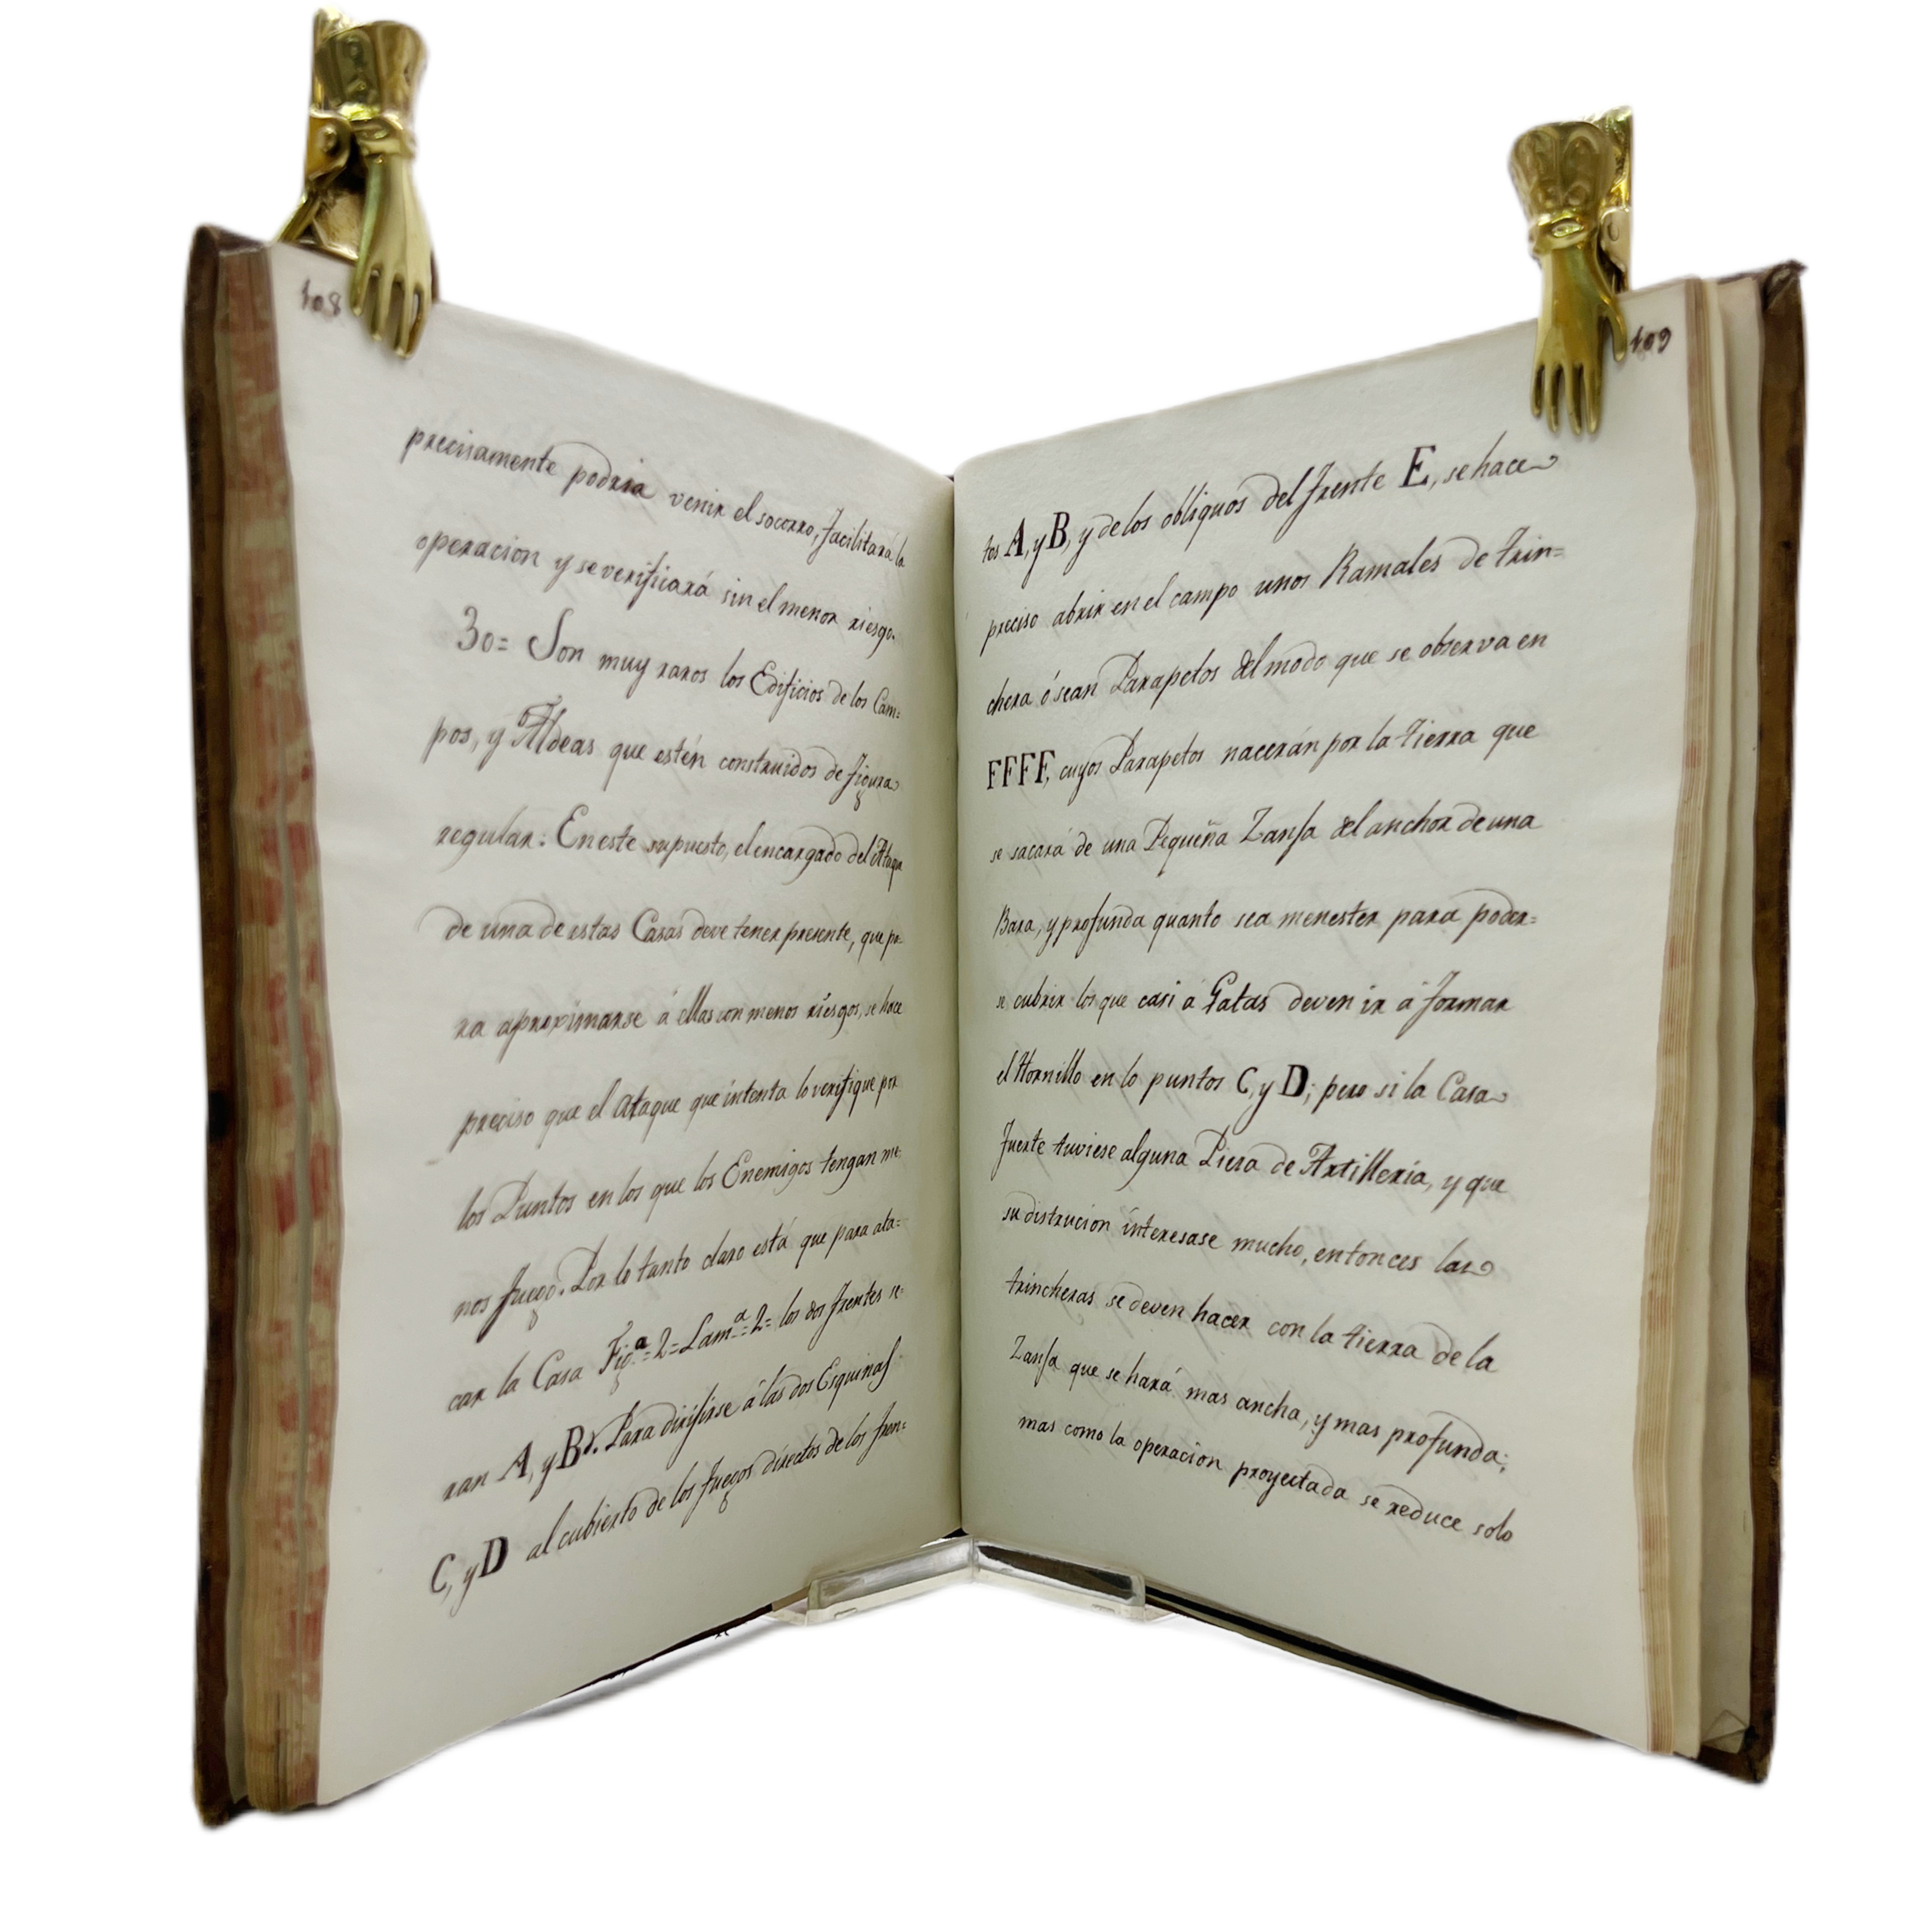 108
precisamente podria venir el socorro, facilitará la
operacion y se verificará sin el menor riesgo.
30= Son muy raros los Edificios de los Cam=
pos, y Aldeas que estén construidos de figura
regular: En este supuesto, el encargado del Ataque
de una de estas Casas deve tener presente, que pa=
ra aproximarse á ellas con menos riesgos, se hace
preciso que el Ataque que intenta lo verifique por
los Puntos en los que los Enemigos tengan me=
nos fuego. Por lo tanto claro está que para ata=
car la Casa Figª=2=Lamª=2= los dos frentes se=
ran A, y B. Para dirifirse á las dos Esquinas
C, y D al cubierto de los fuegos directos de los fren=
109
tes A, y B, y de los obliquos del frente E, se hace
preciso abrir en el campo unos Ramales de trin=
chera ó sean Parapetos del modo que se observa en
FFFF, cuyos Parapetos nacerán por la tierra que
se sacará de una Pequeña Zanfa del anchor de una
Bara, y profunda quanto sea menester para poder=
se cubrir los que casi á Gatas deven ir á formar
el Hornillo en lo puntos C, y D; pero si la Casa
fuerte tuviese alguna Piesa de Artilleria, y que
su distrucion interesase mucho, entonces las
trincheras se deven hacer con la tierra de la
Zanfa que se hará mas ancha, y mas profunda;
mas como la operacion proyectada se reduce solo